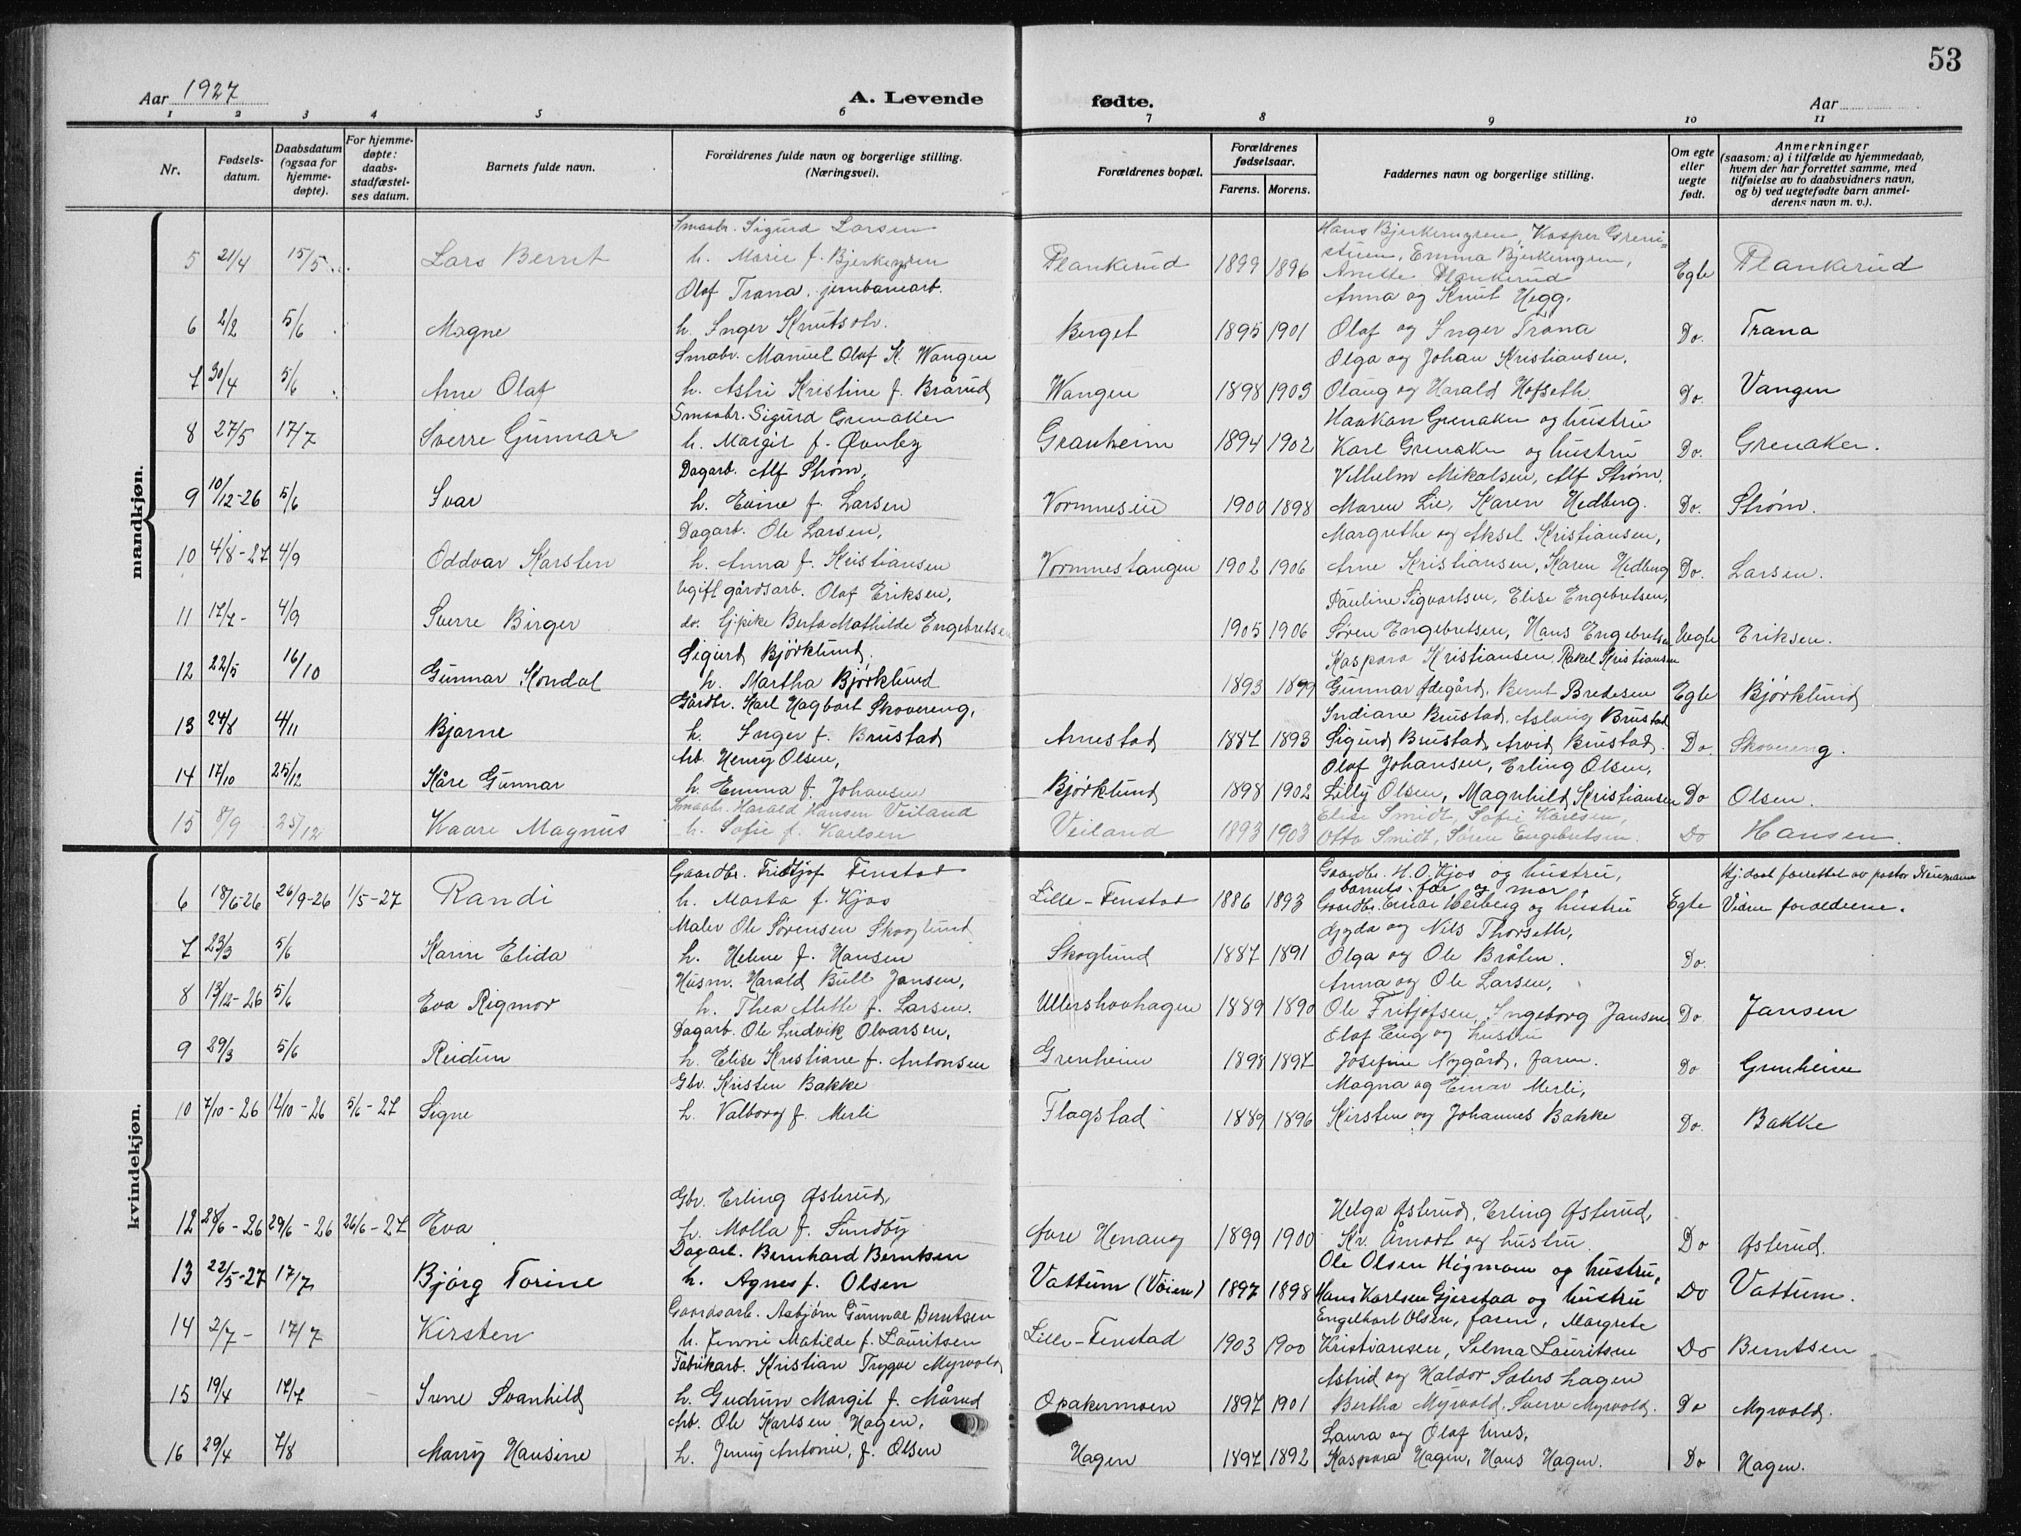 53
Aar 1927
A. Levende
fødte.
Aar
1 2 3 4 5 6 7 8 9 10 11
Nr.
Fødsels-
datum.
Daabsdatum
(ogsaa for
hjemme-
døpte).
For hjemme-
døpte:
daabs-
stadfæstel-
ses datum.
Barnets fulde navn.
Forældrenes fulde navn og borgerlige stilling.
(Næringsvei).
Forældrenes bopæl.
Forældrenes
fødselsaar.
Farens. Morens.
Faddernes navn og borgerlige stilling.
Om egte
eller
uegte
født.
Anmerkninger
(saasom: a) i tilfælde av hjemmedaab,
hvem der har forrettet samme, med
tilføielse av to daabsvidners navn,
og b) ved uegtefødte barn anmel-
derens navn m. v.).
mandkjøn.
Smaabr. Sigurd Larsen Hans Bjerkemyren, Kasper Greni=
5 21/4 15/5 Lars Bernt h. Marie f. Bjerkemyren Plankerud 1899 1896 stuen, Emma Bjerkemyren, Egte Plankerud
Anette Plankerud
Olaf Trana, jernbanearb. Anna og Knut Hegg.
6 2/2 5/6 Magne h. Inger Knutsdtr. Berget 1895 1901 Olaf og Inger Trana Do. Trana
Smabr. Manuel Olaf K. Wangen Olga og Johan Kristiansen,
7 30/4 5/6 Arne Olaf h. Astri Kristine f. Brårud Wangen 1898 1903 Olaug og Harald Hofseth. Do. Vangen
Smaabr. Sigurd Grenaker Haakan Grenaker og hustru
8 27/5 17/7 Sverre Gunnar h. Margit f. Øvnby Granheim 1894 1902 Karl Grenaker og hustru Do. Grenaker.
Dagarb. Alf Strøm, Vilhelm Mikalsen, Alf Strøm.
9 10/12-26 5/6 Ivar h. Evine f. Larsen Vormneseie 1900 1898 Maren Lie, Karen Hedberg. Do. Strøm.
Dagarb. Ole Larsen, Margrethe og Aksel Kristiansen,
10 4/8-27 4/9 Oddvar Karsten h. Anna f. Kristiansen Vormnestangen 1902 1906 Arne Kristiansen, Karen Hedberg Do. Larsen.
Ugift gårdsarb. Olaf Eriksen, Pauline Sigvartsen, Elise Engebretsen,
11 17/7- 4/9 Sverre Birger do. Pike Berta Mathilde Engebretsen 1905 1906 Søren Engebretsen, Hans Engebretsen Uegte Eriksen.
Sigurd Bjørklund. Kaspara Kristiansen, Rakel Kristiansen
12 22/5 16/10 Gunnar Kondal h. Martha Bjørklund 1893 1899 Gunnar Ødegård, Bernt Bredesen Egte Bjørklund
Gårdbr. Karl Hagbart Skovereng, Indiane Brustad, Aslaug Brustad
13 24/8 4/11 Bjarne h. Inger f. Brustad Arnestad 1887 1893 Sigurd Brustad, Arvid Brustad. Do. Skovereng.
Arb. Henry Olsen, Olaf Johansen, Erling Olsen,
14 17/10 25/12 Kåre Gunnar h. Emma f. Johansen Bjørklund 1898 1902 Lilly Olsen, Magnhild Kristiansen Do Olsen.
Smaabr. Harald Hansen Veiland Elise Smidt, Sofie Karlsen,
15 8/9 25/12 Kaare Magnus h. Sofie f. Karlsen Veiland 1893 1903 Otto Smidt, Søren Engebretsen. Do Hansen.
kvindekjøn.
Gaardbr. Fridtjof Fenstad Gaardbr. H. O. Kjos og hustru, Hj.daab forrettet av pastor Neumann
barnets far og mor,
6 18/6-26 26/9-26 1/5-27 Randi h. Marta f. Kjos Lille-Fenstad 1886 1893 Gaardbr. Einar Heiberg og hustru Egte Vidne foreldrene.
Maler Ole Sørensen Skoglund Gyda og Nils Thorseth,
7 23/3 5/6 Karin Elida h. Helene f. Hansen Skoglund 1887 1891 Olga og Ole Bråten. Do.
Husm. Harald Bull Jansen, Anna og Ole Larsen,
8 13/12-26 5/6 Eva Rigmor h. Thea Alette f. Larsen. Ullershovhagen 1889 1890 Ole Fritjofsen, Ingeborg Jansen Do. Jansen
Dagarb. Ole Ludvik Olvarsen, Olaf Eng og hustru
9 29/3 5/6 Reidun h. Elise Kristiane f. Antonsen Grenheim 1898 1897 Josefine Nygård, faren. Do Grenheim
Gbr. Kristen Bakke Magna og Einar Merli,
10 7/10-26 12/10-26 5/6-27 Signe h. Valborg f. Merli Flagstad 1889 1896 Kirsten og Johannes Bakke Do. Bakke
Gbr. Erling Østerud, Helga Østerud, Erling Østerud,
12 28/6-26 29/6-26 26/6-27 Eva h. Molla f. Sundby Øvre Henaug 1899 1900 Kr. Åmodt og hustru. Do Østerud.
Dagarb. Bernhard Berntsen Ole Olsen Høgmoen og hustru,
13 22/5-27 17/7 Bjørg Torine h. Agnes f. Olsen Vattum (Voien) 1897 1898 Hans Karlsen Gjerstad og hustru Do Vattum.
Gaardsarb. Asbjørn Gunnar Berntsen Engelhart Olsen, faren, Margrete
14 2/7- 17/7 Kirsten h. Jenni Matilde f. Lauritsen Lille-Fenstad 1903 1900 Kristiansen, Selma Lauritsen Do Berntsen
Fabrikarb. Kristian Trygve Myrvold, Astrid og Haldor Satershagen
15 19/4 17/7 Irene Svanhild h. Gudrun Margit f. Mårud Opakermoen 1897 1901 Bertha Myrvold, Sverre Myrvold. Do Myrvold.
Arb. Ole Karlsen Hagen, Laura og Olaf Unes,
16 29/4 7/8 Marry Hansine h. Jenny Antonie, f. Olsen Hagen 1897 1892 Kaspara Hagen, Hans Hagen. Do Hagen.